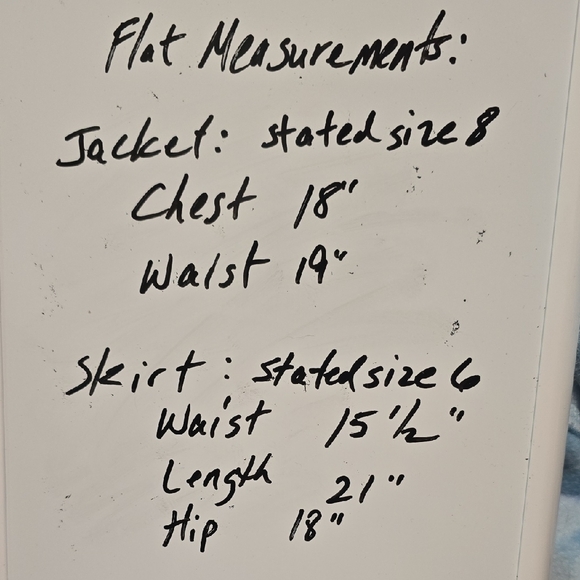 Flat Measurements:
Jacket: stated size 8
Chest 18"
Waist 19"
Skirt: stated size 6
Waist 15 1/2"
Length 21"
Hip 18"